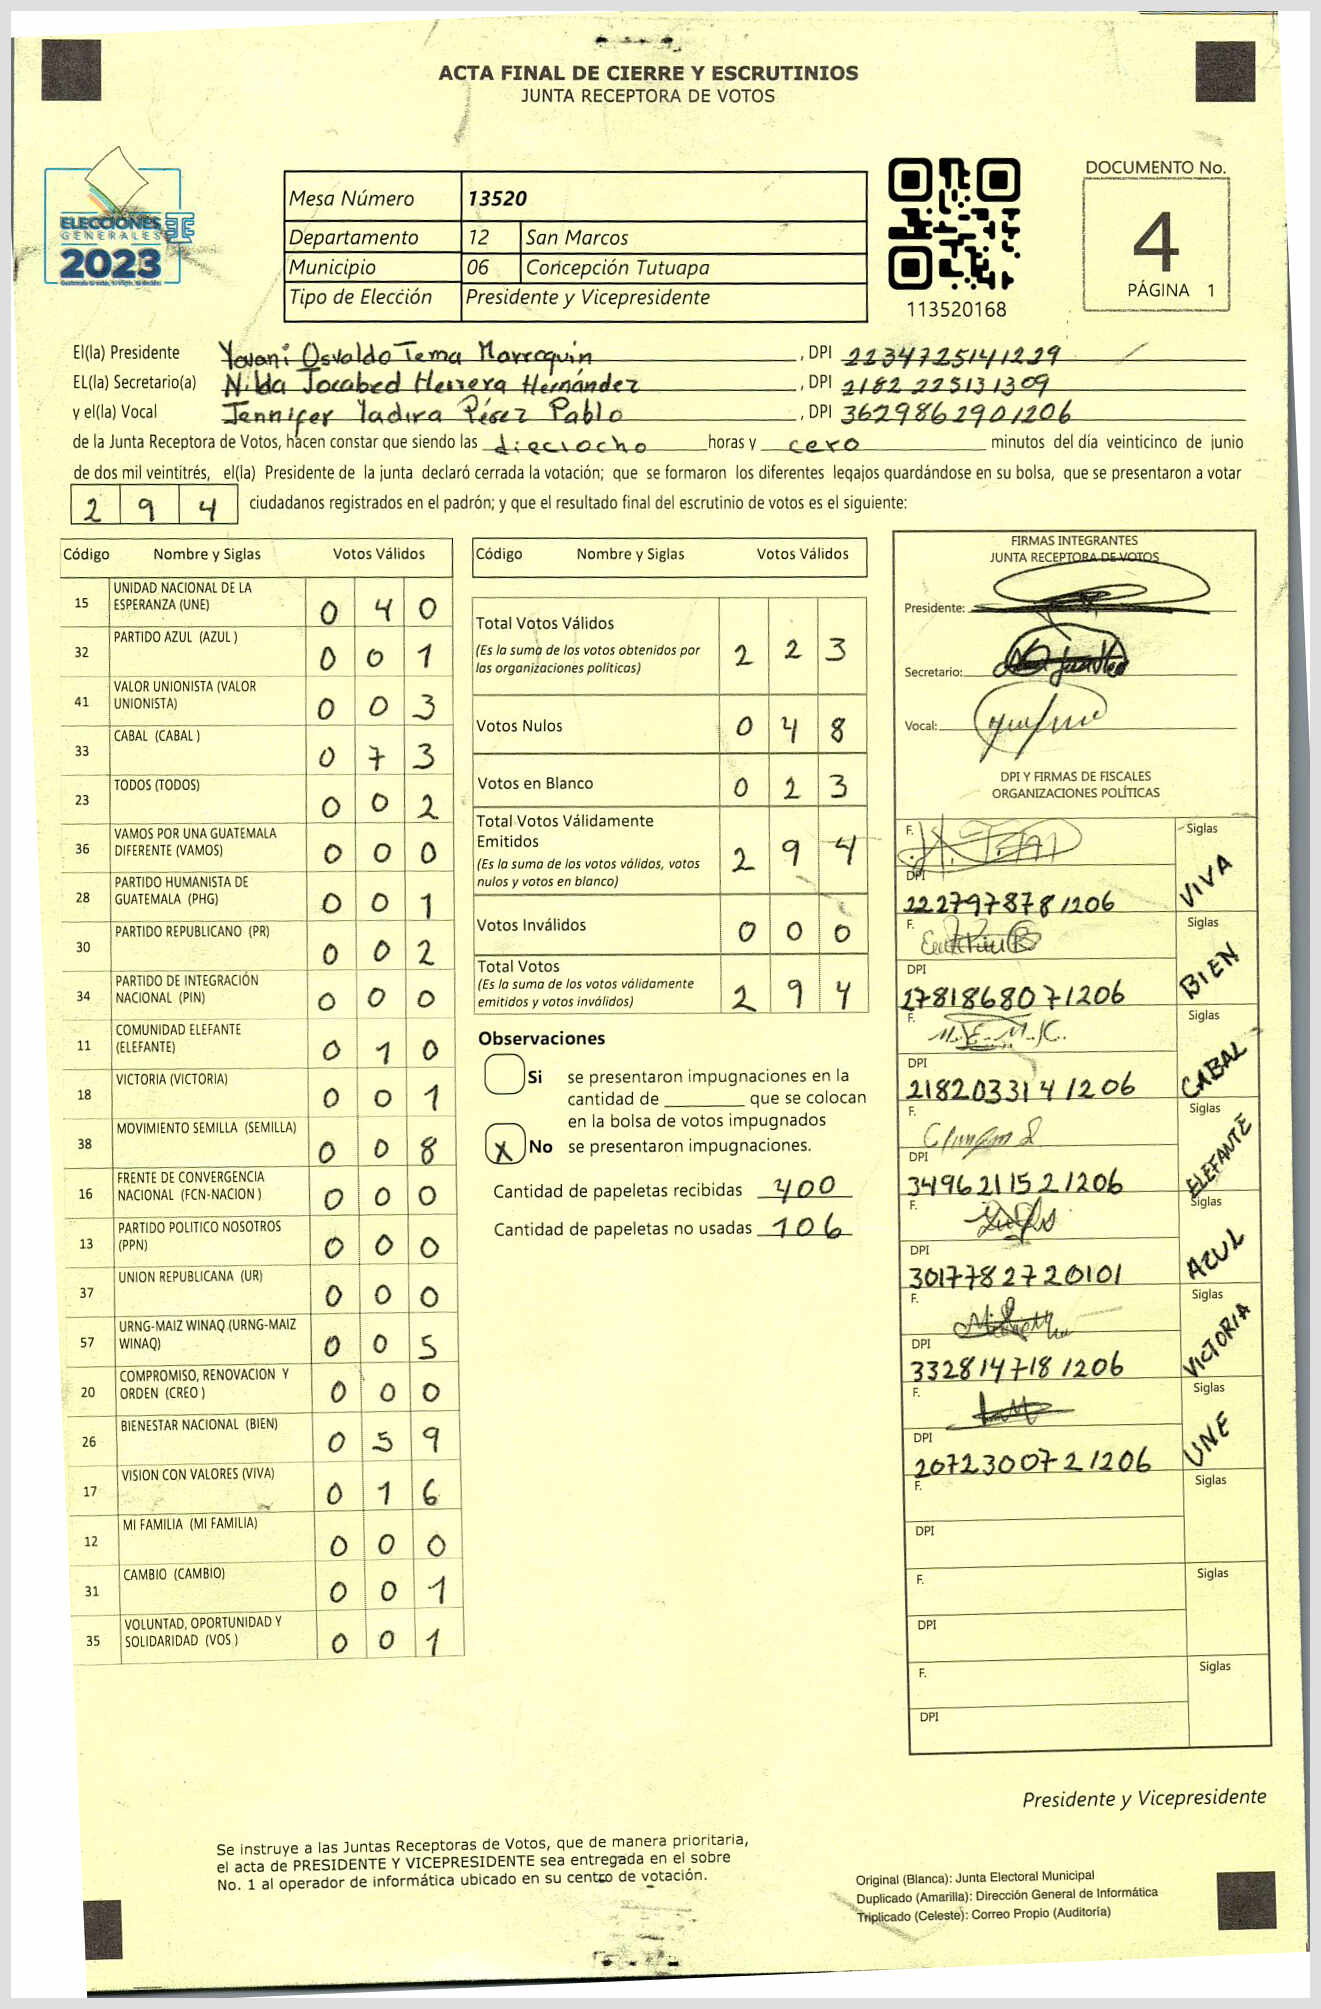 ACTA FINAL DE CIERRE Y ESCRUTINIOS
JUNTA RECEPTORA DE VOTOS
ELECCIONES
GENERALES
2023
Mesa Número 13520
Departamento 12 San Marcos
Municipio 06 Concepción Tutuapa
Tipo de Elección Presidente y Vicepresidente
113520168
DOCUMENTO No.
4
PÁGINA 1
El(la) Presidente Yovani Osvaldo Tema Marroquin, DPI 2234725141229
EL(la) Secretario(a) Nilda Jocabed Herrera Hernández, DPI 2182 22513 1309
y el(la) Vocal Jennifer Yadira Pérez Pablo, DPI 3629862901206
de la Junta Receptora de Votos, hacen constar que siendo las dieciocho horas y cero minutos del día veinticinco de junio
de dos mil veintitrés, el(la) Presidente de la junta declaró cerrada la votación; que se formaron los diferentes legajos guardándose en su bolsa, que se presentaron a votar
2 9 4 ciudadanos registrados en el padrón; y que el resultado final del escrutinio de votos es el siguiente:
Código Nombre y Siglas Votos Válidos
15 UNIDAD NACIONAL DE LA ESPERANZA (UNE) 0 4 0
32 PARTIDO AZUL (AZUL ) 0 0 1
41 VALOR UNIONISTA (VALOR UNIONISTA) 0 0 3
33 CABAL (CABAL ) 0 7 3
23 TODOS (TODOS) 0 0 2
36 VAMOS POR UNA GUATEMALA DIFERENTE (VAMOS) 0 0 0
28 PARTIDO HUMANISTA DE GUATEMALA (PHG) 0 0 1
30 PARTIDO REPUBLICANO (PR) 0 0 2
34 PARTIDO DE INTEGRACIÓN NACIONAL (PIN) 0 0 0
11 COMUNIDAD ELEFANTE (ELEFANTE) 0 1 0
18 VICTORIA (VICTORIA) 0 0 1
38 MOVIMIENTO SEMILLA (SEMILLA) 0 0 8
16 FRENTE DE CONVERGENCIA NACIONAL (FCN-NACION ) 0 0 0
13 PARTIDO POLITICO NOSOTROS (PPN) 0 0 0
37 UNION REPUBLICANA (UR) 0 0 0
57 URNG-MAIZ WINAQ (URNG-MAIZ WINAQ) 0 0 5
20 COMPROMISO, RENOVACION Y ORDEN (CREO ) 0 0 0
26 BIENESTAR NACIONAL (BIEN) 0 5 9
17 VISION CON VALORES (VIVA) 0 1 6
12 MI FAMILIA (MI FAMILIA) 0 0 0
31 CAMBIO (CAMBIO) 0 0 1
35 VOLUNTAD, OPORTUNIDAD Y SOLIDARIDAD (VOS ) 0 0 1
Código Nombre y Siglas Votos Válidos
Total Votos Válidos 2 2 3
(Es la suma de los votos obtenidos por
las organizaciones políticas)
Votos Nulos 0 4 8
Votos en Blanco 0 2 3
Total Votos Válidamente
Emitidos 2 9 4
(Es la suma de los votos válidos, votos
nulos y votos en blanco)
Votos Inválidos 0 0 0
Total Votos
(Es la suma de los votos válidamente
emitidos y votos inválidos) 2 9 4
Observaciones
Si se presentaron impugnaciones en la
cantidad de ________ que se colocan
en la bolsa de votos impugnados
X No se presentaron impugnaciones.
Cantidad de papeletas recibidas 400
Cantidad de papeletas no usadas 106
FIRMAS INTEGRANTES
JUNTA RECEPTORA DE VOTOS
Presidente:
Secretario:
Vocal:
DPI Y FIRMAS DE FISCALES
ORGANIZACIONES POLÍTICAS
F. Siglas
DPI 2227978781206 VIVA
F. Siglas
DPI 2781868071206 BIEN
F. M.E.M.C. Siglas
DPI 2182033141206 CABAL
F. Siglas
DPI 3496211521206 ELEFANTE
F. Siglas
DPI 3017782720101 AZUL
F. Siglas
DPI 3328147181206 VICTORIA
F. Siglas
DPI 2072300721206 UNE
F. Siglas
DPI
F. Siglas
DPI
F. Siglas
DPI
Presidente y Vicepresidente
Se instruye a las Juntas Receptoras de Votos, que de manera prioritaria,
el acta de PRESIDENTE Y VICEPRESIDENTE sea entregada en el sobre
No. 1 al operador de informática ubicado en su centro de votación.
Original (Blanca): Junta Electoral Municipal
Duplicado (Amarilla): Dirección General de Informática
Triplicado (Celeste): Correo Propio (Auditoría)